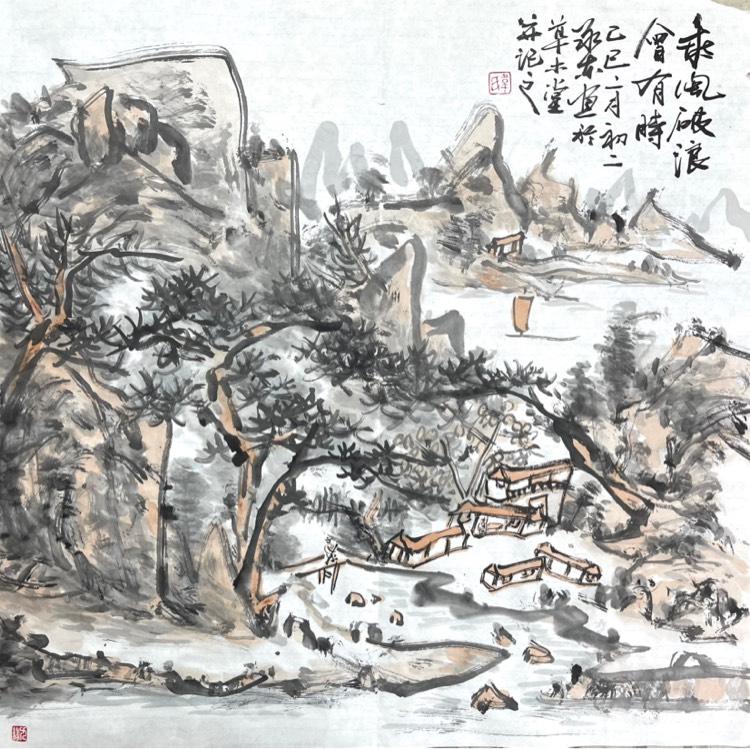 乘風破浪
會有時
乙巳六月初二
画於
草木堂
并记之